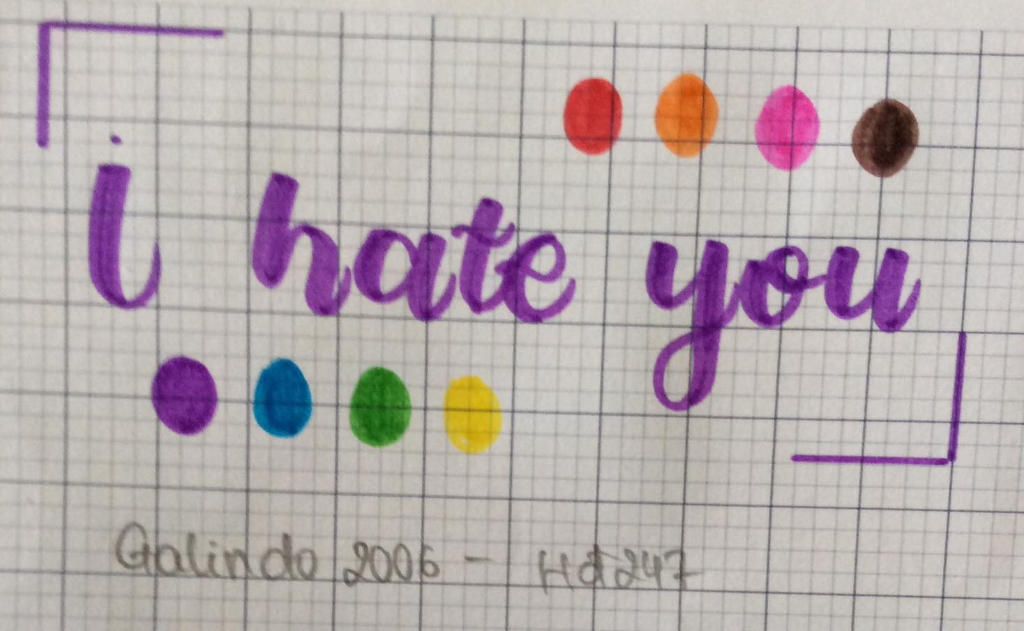 i hate you
Galindo 2006 - Hd247